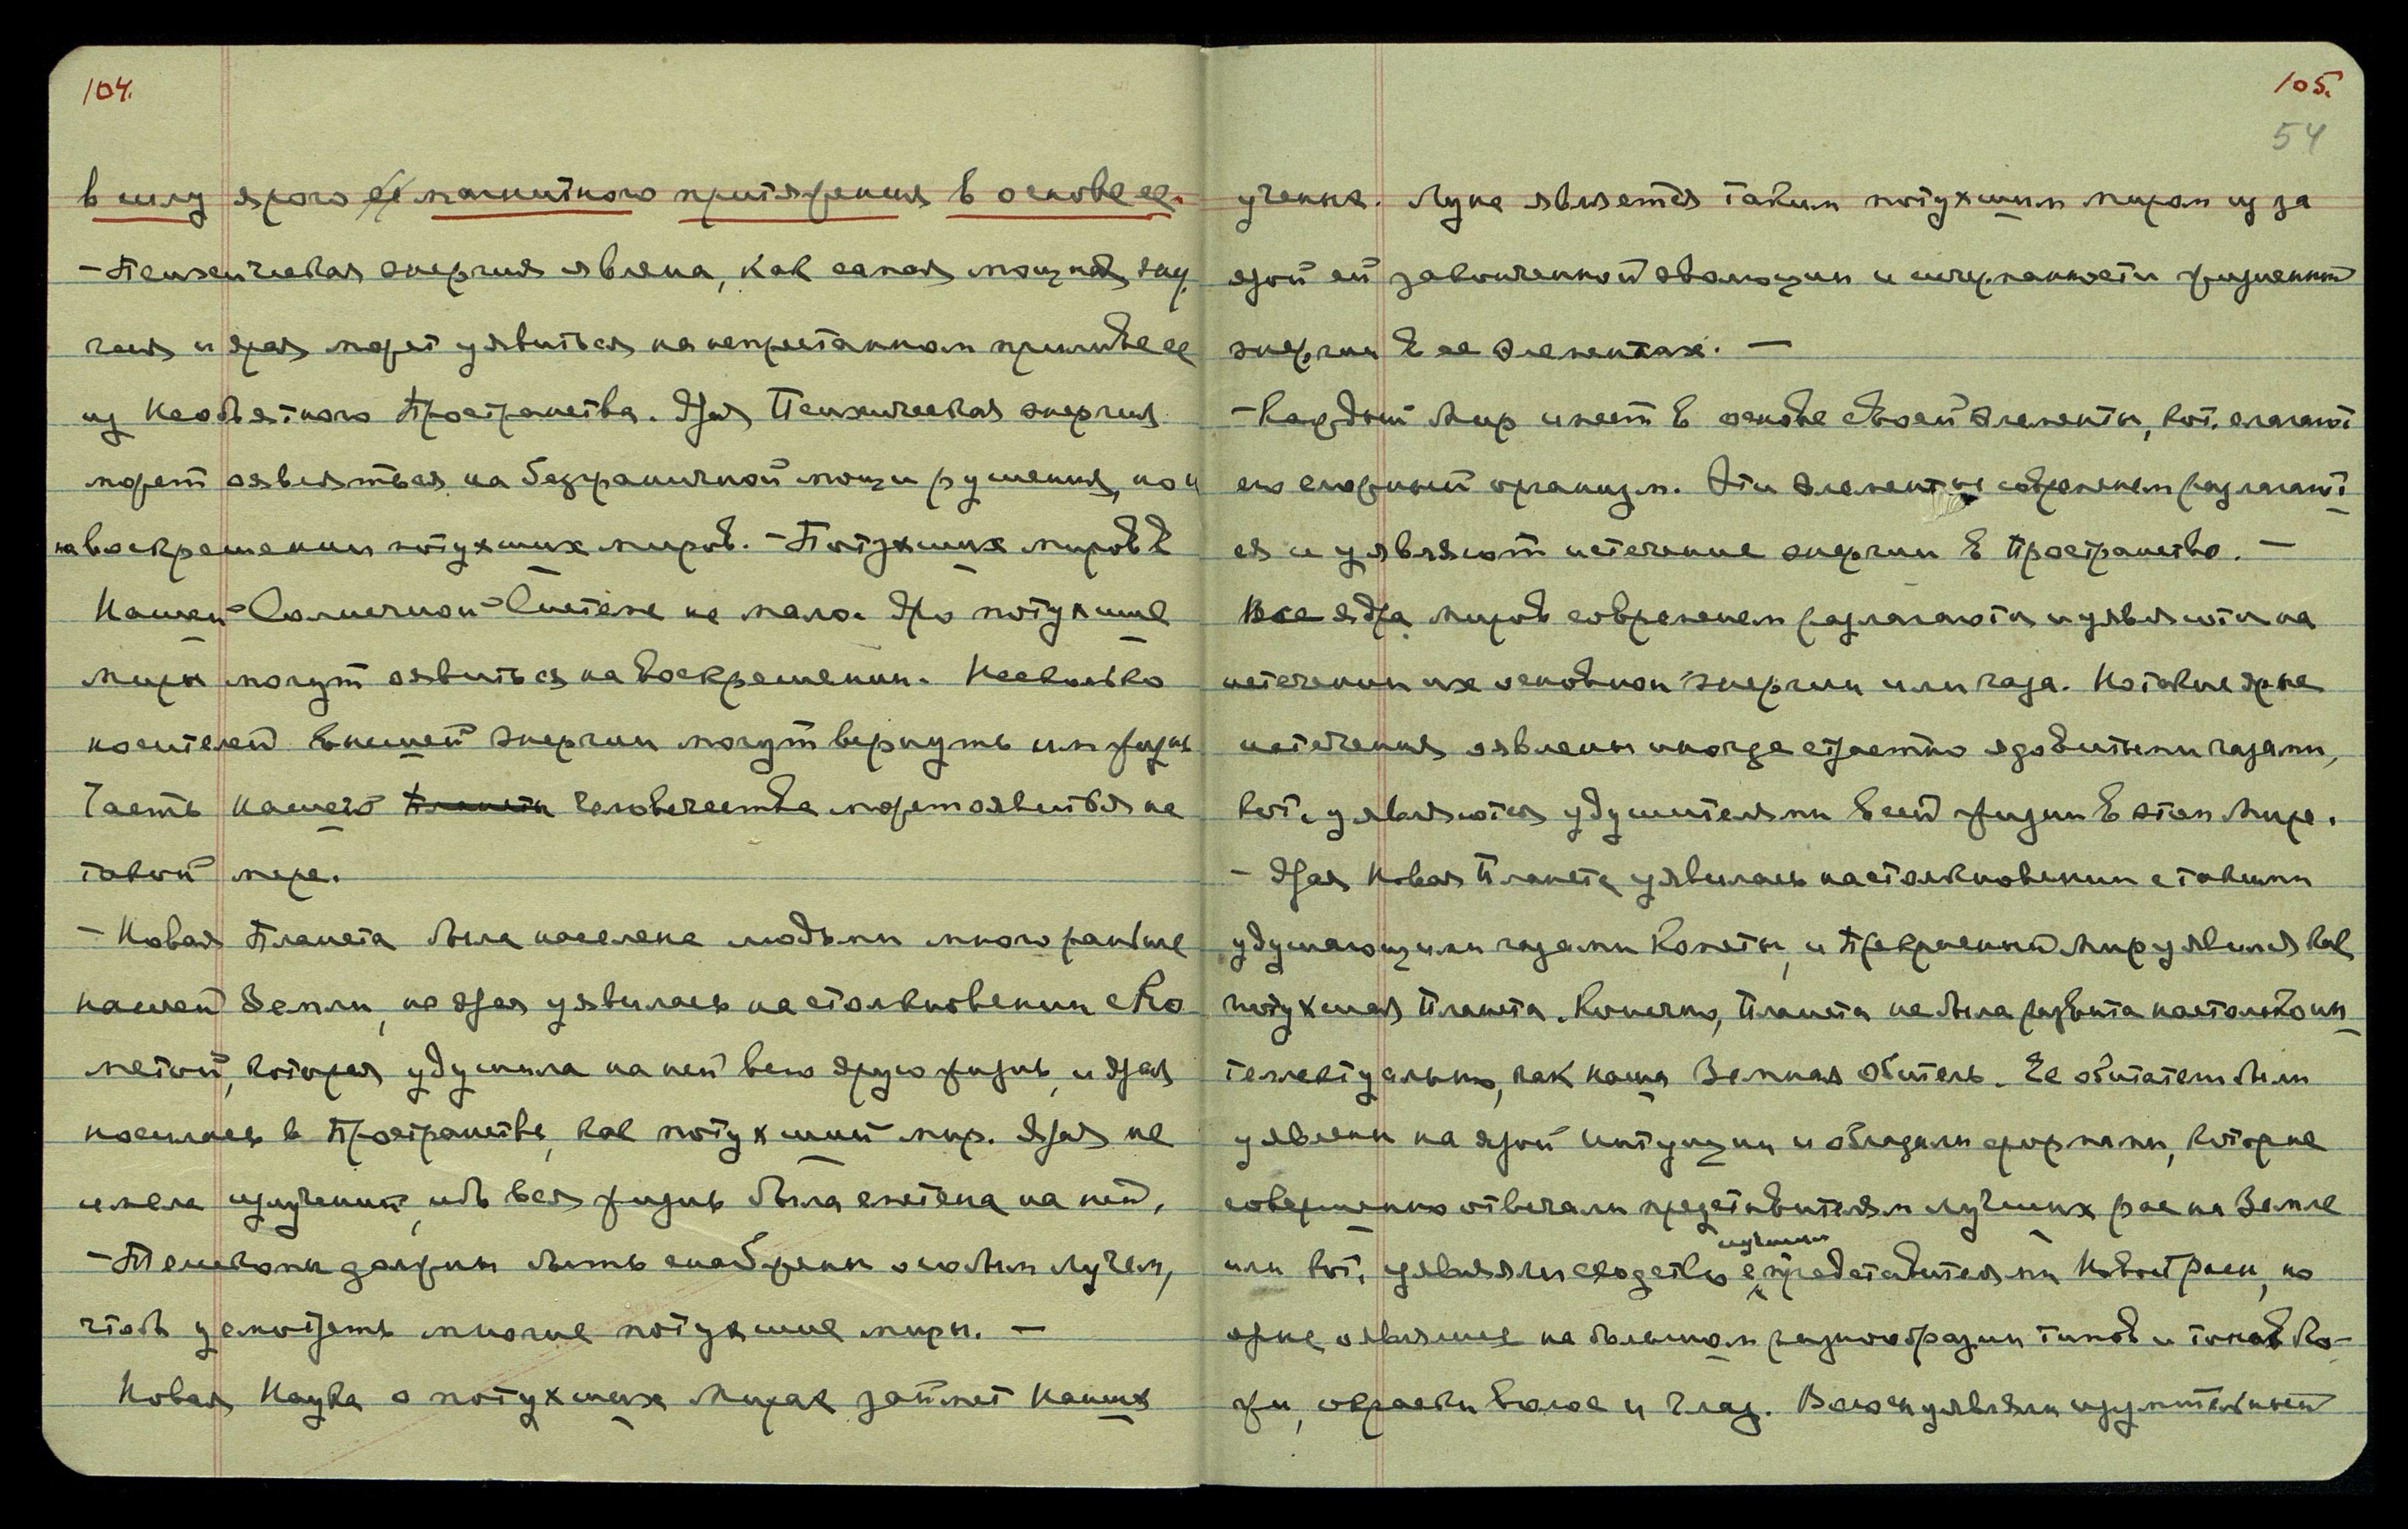 104.
в силу ярого магнитного притяжения в основе ее.
– Психическая энергия явлена, как самая мощная энер
гия и ярая может уявиться на непрестанном приливе ее
из Необъятного Пространства. Ярая Психическая энергия
может оявляться на безграничной мощи рушения, но и
на воскрешении потухших миров. – Потухших миров в
Нашей Солнечной Системе не мало. Яро потухшие
миры могут оявиться на воскрешении. Несколько
носителей высшей энергии могут вернуть им жизнь
Часть нашего Планеты человечества может оявиться на
такой мере.
– Новая Планета была населена людьми много раньше
нашей Земли, но ярая уявилась на столкновении с Ко
метой, которая удушила на ней всю ярую жизнь, и ярая
носилась в Пространстве, как потухший мир. Ярая не
имела излучений, ибо вся жизнь была сметена на ней.
– Телескопы должны быть снабжены особым лучем,
чтоб усмотреть многие потухшие миры. –
Новая Наука о потухших Мирах займет Наших
105.
54
ученых. Луна является таким потухшим миром из за
ярой ей законченной эволюции и исчерпанности жизненной
энергии в ее элементах. –
– Каждый Мир имеет в основе своей элементы, кот. слагают
его сложный организм. Эти элементы со временем разлагают
ся и уявляют истечение энергии в Пространство. –
Все ядра миров со временем разлагаются и уявляются на
истечении их основной энергии или газа. Но такие ярые
истечения оявлены иногда страстно ядовитыми газами,
кот. уявляются удушителями всей жизни в этом Мире.
– Ярая Новая Планета уявилась на столкновении с такими
удушающими газами Кометы, и Прекрасный Мир уявился как
потухшая Планета. Конечно, Планета не была развита настолько ин
теллектуально, как наша Земная Обитель. Ее обитатели были
уявлены на ярой интуиции и обладали формами, которые
совершенно отвечали представителям лучших рас на Земле
лучшими
или кот. уявляли сходство с представителями Новой Расы, но
ярые оявленные на большом разнообразии типов и тонов ко-
жи, окраски волос и глаз. Волосы уявляли изумительный